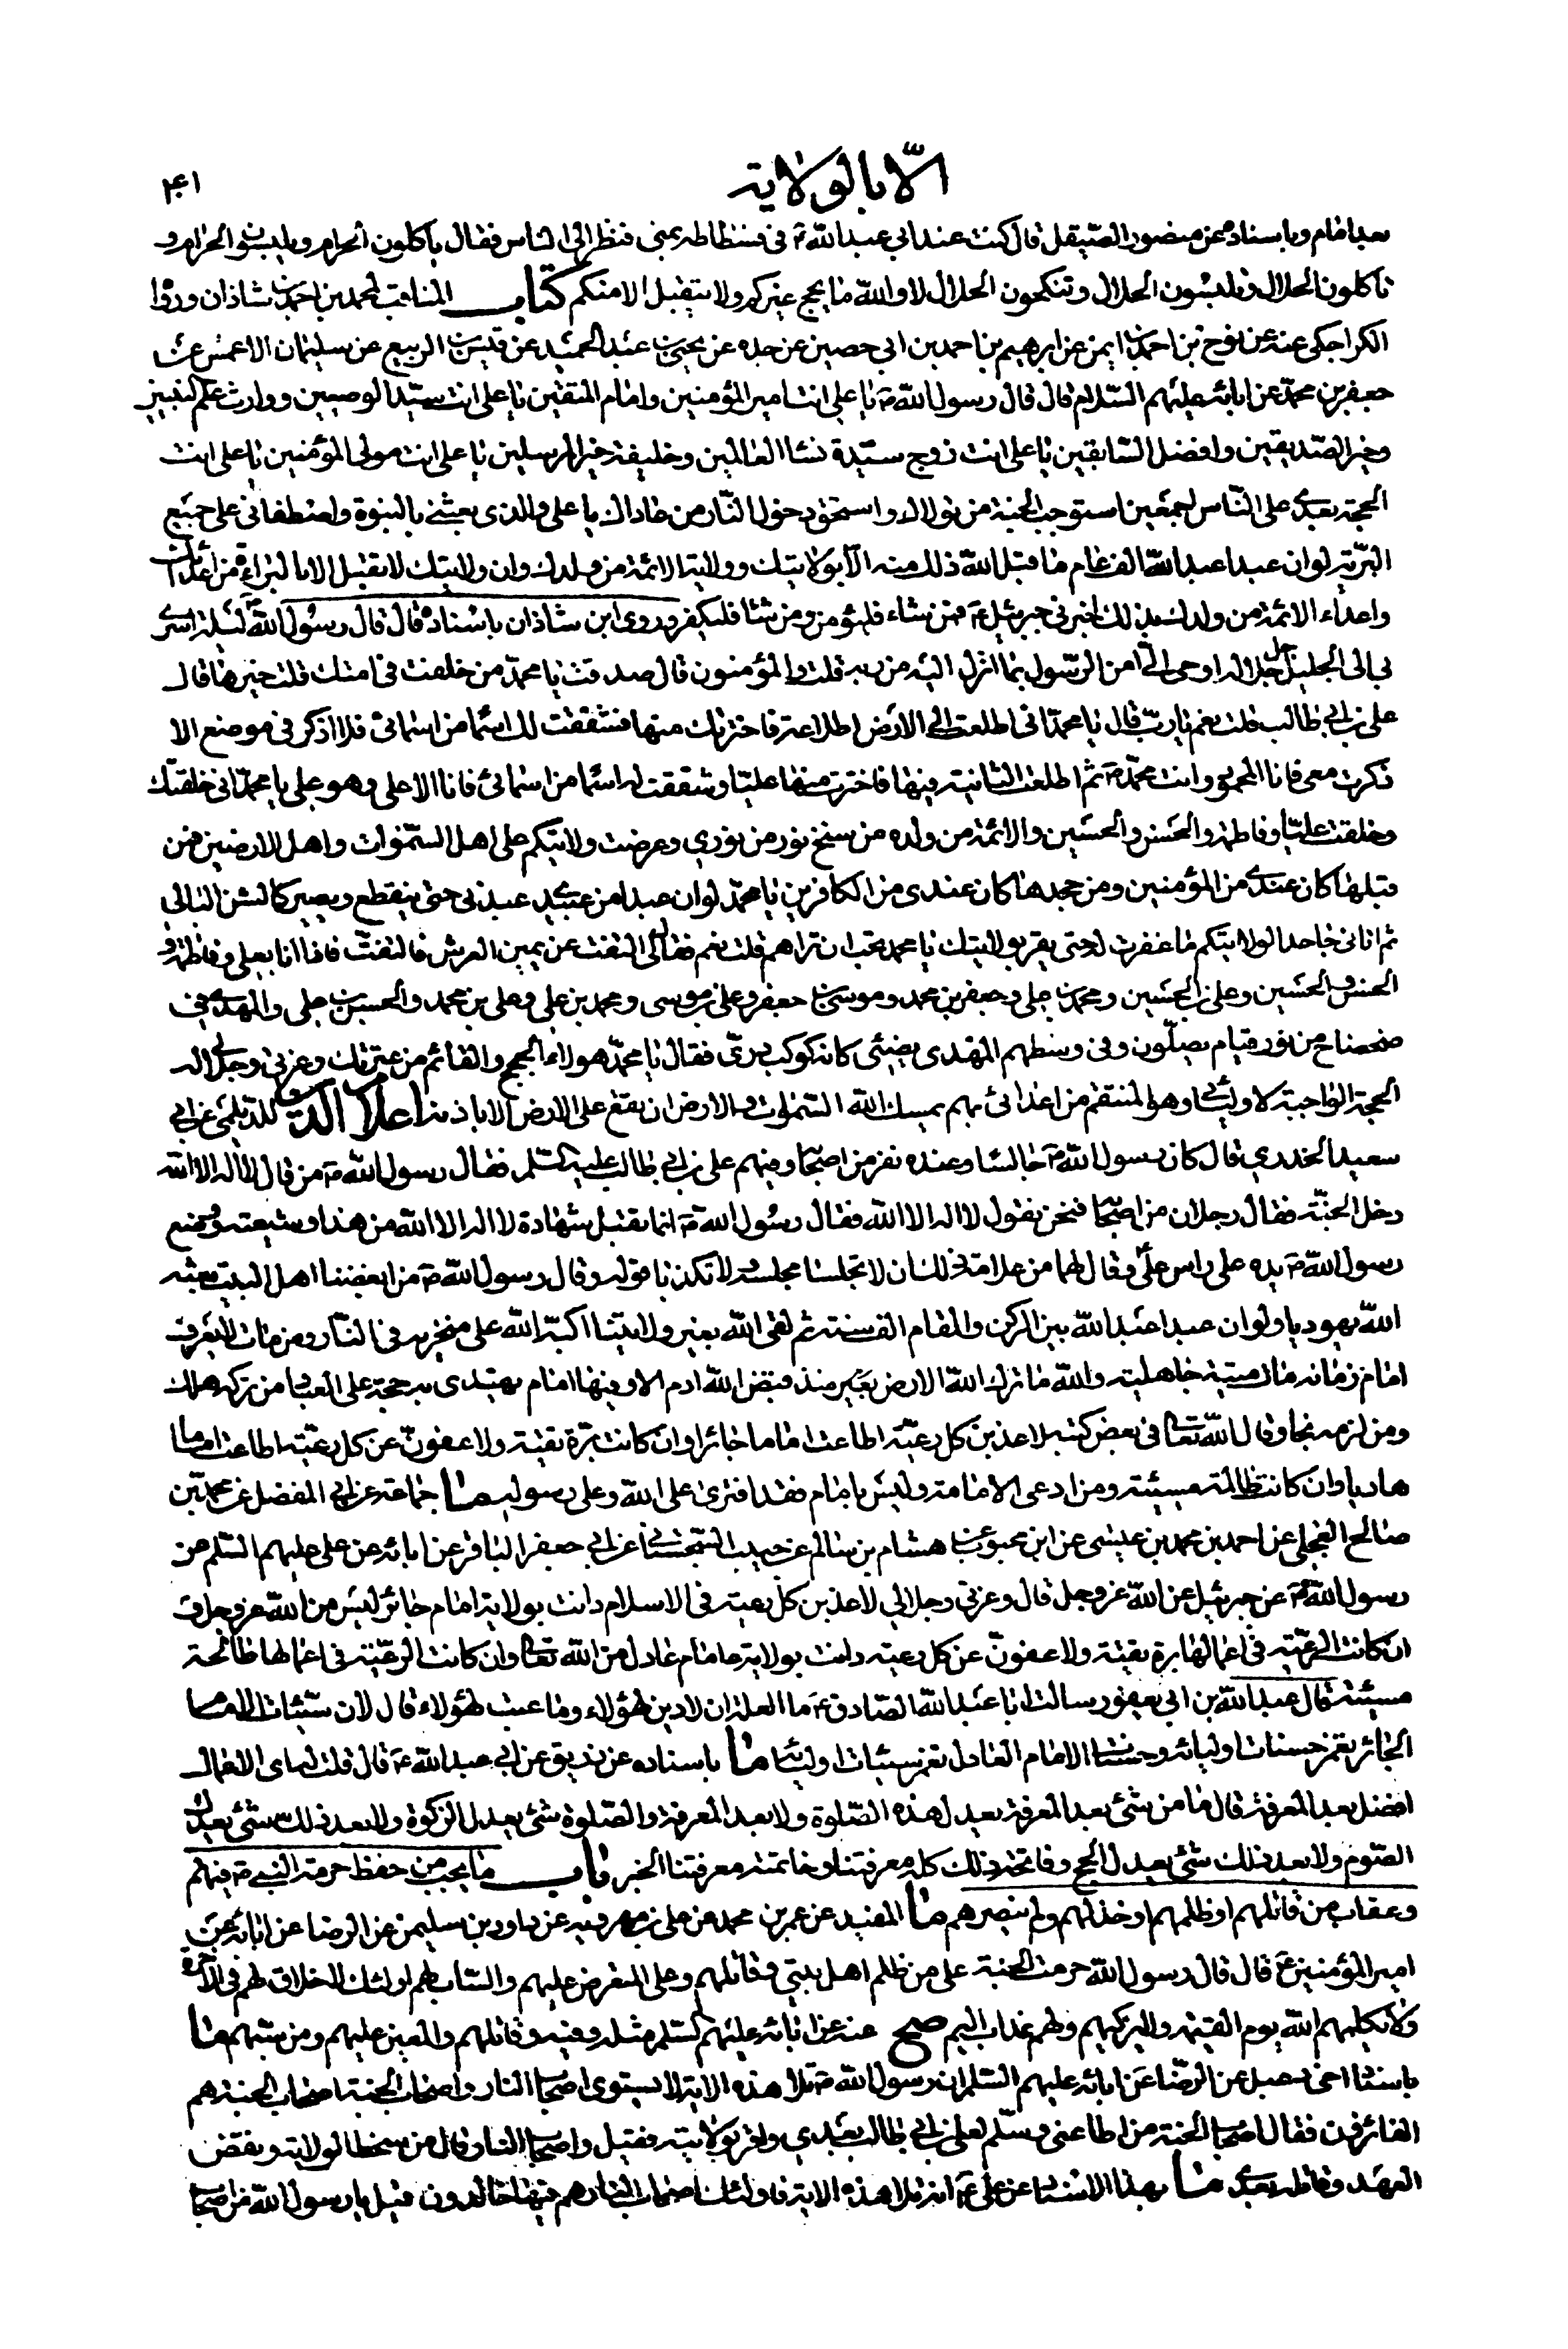 الّا بالولاية
۴۰۱
بعد امام وباسناده عن منصور الصيقل قال كنت عند ابي عبد الله ع في فسطاطه بمنى فنظر الى الناس فقال ياكلون الحرام ويلبسون الحرام و
تاكلون الحلال وتلبسون الحلال وتنكحون الحلال لا والله ما يحج غيركم ولا يتقبل الا منكم كتاب المناقب لمحمد بن احمد بن شاذان ورواه
الكراجكي عنه عن نوح بن احمد بن ايمن عن ابرهيم بن احمد بن ابي حصين عن جده عن يحيى بن عبد الحميد عن قيس بن الربيع عن سليمان الاعمش عن
جعفر بن محمد عن ابائه عليهم السلام قال قال رسول الله ص يا علي انت امير المؤمنين وامام المتقين يا علي انت سيد الوصيين ووارث علم النبيين
وخير الصديقين وافضل السابقين يا علي انت زوج سيدة نساء العالمين وخليفة خير المرسلين يا علي انت مولى المؤمنين يا علي انت
الحجة بعدي على الناس اجمعين استوجب الجنة من تولاك واستحق دخول النار من عاداك يا علي والذي بعثني بالنبوة واصطفاني على جميع
البرية لو ان عبدا عبد الله الف عام ما قبل الله ذلك منه الا بولايتك وولاية الائمة من ولدك وان ولايتك لا تقبل الا بالبراءة من اعدائك
واعداء الائمة من ولدك بذلك اخبرني جبرئيل ع فمن شاء فليؤمن ومن شاء فليكفر وروى ابن شاذان باسناده قال قال رسول الله ص ليلة اسري
بي الى الجليل جل جلاله اوحى الي امن الرسول بما انزل اليه من ربه قلت والمؤمنون قال صدقت يا محمد من خلفت في امتك قلت خيرها قال
علي بن ابي طالب قلت نعم يا رب قال يا محمد اني اطلعت الى الارض اطلاعة فاخترتك منها فشققت لك اسما من اسمائي فلا اذكر في موضع الا
ذكرت معي فانا المحمود وانت محمد ص ثم اطلعت الثانية فيها فاخترت منها عليا وشققت له اسما من اسمائي فانا الاعلى وهو علي يا محمد اني خلقتك
وخلقت عليا وفاطمة والحسن والحسين والائمة من ولده من سنخ نور من نوري وعرضت ولايتكم على اهل السموات واهل الارضين فمن
قبلها كان عندي من المؤمنين ومن جحدها كان عندي من الكافرين يا محمد لو ان عبدا من عبيدي عبدني حتى ينقطع ويصير كالشن البالي
ثم اتاني جاحدا لولايتكم ما غفرت له حتى يقر بولايتك يا محمد تحب ان تراهم قلت نعم فقال لي التفت عن يمين العرش فالتفت فاذا انا بعلي وفاطمة و
الحسن والحسين وعلي بن الحسين ومحمد بن علي وجعفر بن محمد وموسى بن جعفر وعلي بن موسى ومحمد بن علي وعلي بن محمد والحسن بن علي والمهدي في
ضحضاح من نور قيام يصلون وفي وسطهم المهدي يضيئ كانه كوكب دري فقال يا محمد هولاء الحجج والقائم من عترتك وعزتي وجلالي له
الحجة الواجبة لاوليائي وهو المنتقم من اعدائي بهم يمسك الله السموات والارض ان يقع على الارض الا باذنه اعلام الدين للديلمي عن ابي
سعيد الخدري قال كان رسول الله ص جالسا وعنده نفر من اصحابه وفيهم علي بن ابي طالب عليه السلم فقال رسول الله ص من قال لا اله الا الله
دخل الجنة فقال رجلان من اصحابه فنحن نقول لا اله الا الله فقال رسول الله ص انما يقبل شهادة لا اله الا الله من هذا وشيعته ووضع
رسول الله ص يده على راس علي ع وقال لهما من علامة ذلك ان لا تجلسا مجلسه ولا تكذبا قوله وقال رسول الله ص من ابغضنا اهل البيت بعثه
الله يهوديا ولو ان عبدا عبد الله بين الركن والمقام الف سنة ثم لقى الله بغير ولايتنا اكبه الله على منخريه في النار ومن مات لا يعرف
امام زمانه مات ميتة جاهلية والله ما ترك الله الارض بغير منذ قبض الله ادم الا وفيها امام يهتدى به حجة على العباد من تركه هلك
ومن لزمه نجا وقال الله تعالى في بعض كتبه لاعذبن كل رعية اطاعت اماما جائرا وان كانت برة تقية ولاعفون عن كل رعية اطاعت اماما
هاديا وان كانت ظالمة مسيئة ومن ادعى الامامة وليس بامام فقد افترى على الله وعلى رسوله ما جماعة عن ابي المفضل عن محمد بن
صالح العجلي عن احمد بن محمد بن عيسى عن ابن محبوب عن هشام بن سالم عن حبيب السجستاني عن ابي جعفر الباقر عن ابائه عن علي عليهم السلم عن
رسول الله ص عن جبرئيل عن الله عز وجل قال وعزتي وجلالي لاعذبن كل رعية في الاسلام دانت بولاية امام جائر ليس من الله عز وجل و
ان كانت الرعية في اعمالها برة تقية ولاعفون عن كل رعية دانت بولاية امام عادل من الله تعالى وان كانت الرعية في اعمالها طالحة
مسيئة قال عبد الله بن ابي يعفور سالت ابا عبد الله الصادق ع ما العلة ان لا دين لهؤلاء وما عتب لهؤلاء قال لان سيئات الامام
الجائر تغمر حسنات اوليائه وحسنات الامام العادل تغمر سيئات اوليائه ما باسناده عن زريق عن ابي عبد الله ع قال قلت له اي الاعمال
افضل بعد المعرفة قال ما من شئ بعد المعرفة يعدل هذه الصلوة ولا بعد المعرفة والصلوة شئ يعدل الزكوة ولا بعد ذلك شئ يعدل
الصوم ولا بعد ذلك شئ يعدل الحج وفاتحة ذلك كله معرفتنا وخاتمته معرفتنا الخبر باب ما يجب من حفظ حرمة النبي ص فيهم
وعقاب من قاتلهم او ظلمهم او خذلهم ولم ينصرهم ما المفيد عن عمر بن محمد عن علي بن مهرويه عن داود بن سليمن عن الرضا عن ابائه عن
امير المؤمنين ع قال قال رسول الله حرمت الجنة على من ظلم اهل بيتي وقاتلهم وعلى المتعرض عليهم والساب لهم اولئك لا خلاق لهم في الاخرة
ولا يكلمهم الله يوم القيمة ولا يزكيهم ولهم عذاب اليم صح عنه عن ابائه عليهم السلم مثله وفيه وقاتلهم والمعين عليهم ومن سبهم ما
باسناد اخي دعبل عن الرضا عن ابائه عليهم السلم ان رسول الله ص تلا هذه الاية لا يستوي اصحاب النار واصحاب الجنة اصحاب الجنة هم
الفائزون فقال اصحاب الجنة من اطاعني وسلم لعلي بن ابي طالب بعدي واقر بولايته فقيل واصحاب النار قال من سخط الولاية ونقض
العهد وقاتله بعدي ما بهذا الاسناد عن علي ع انه تلا هذه الاية فاولئك اصحاب النار هم فيها خالدون قيل يا رسول الله من اصحاب